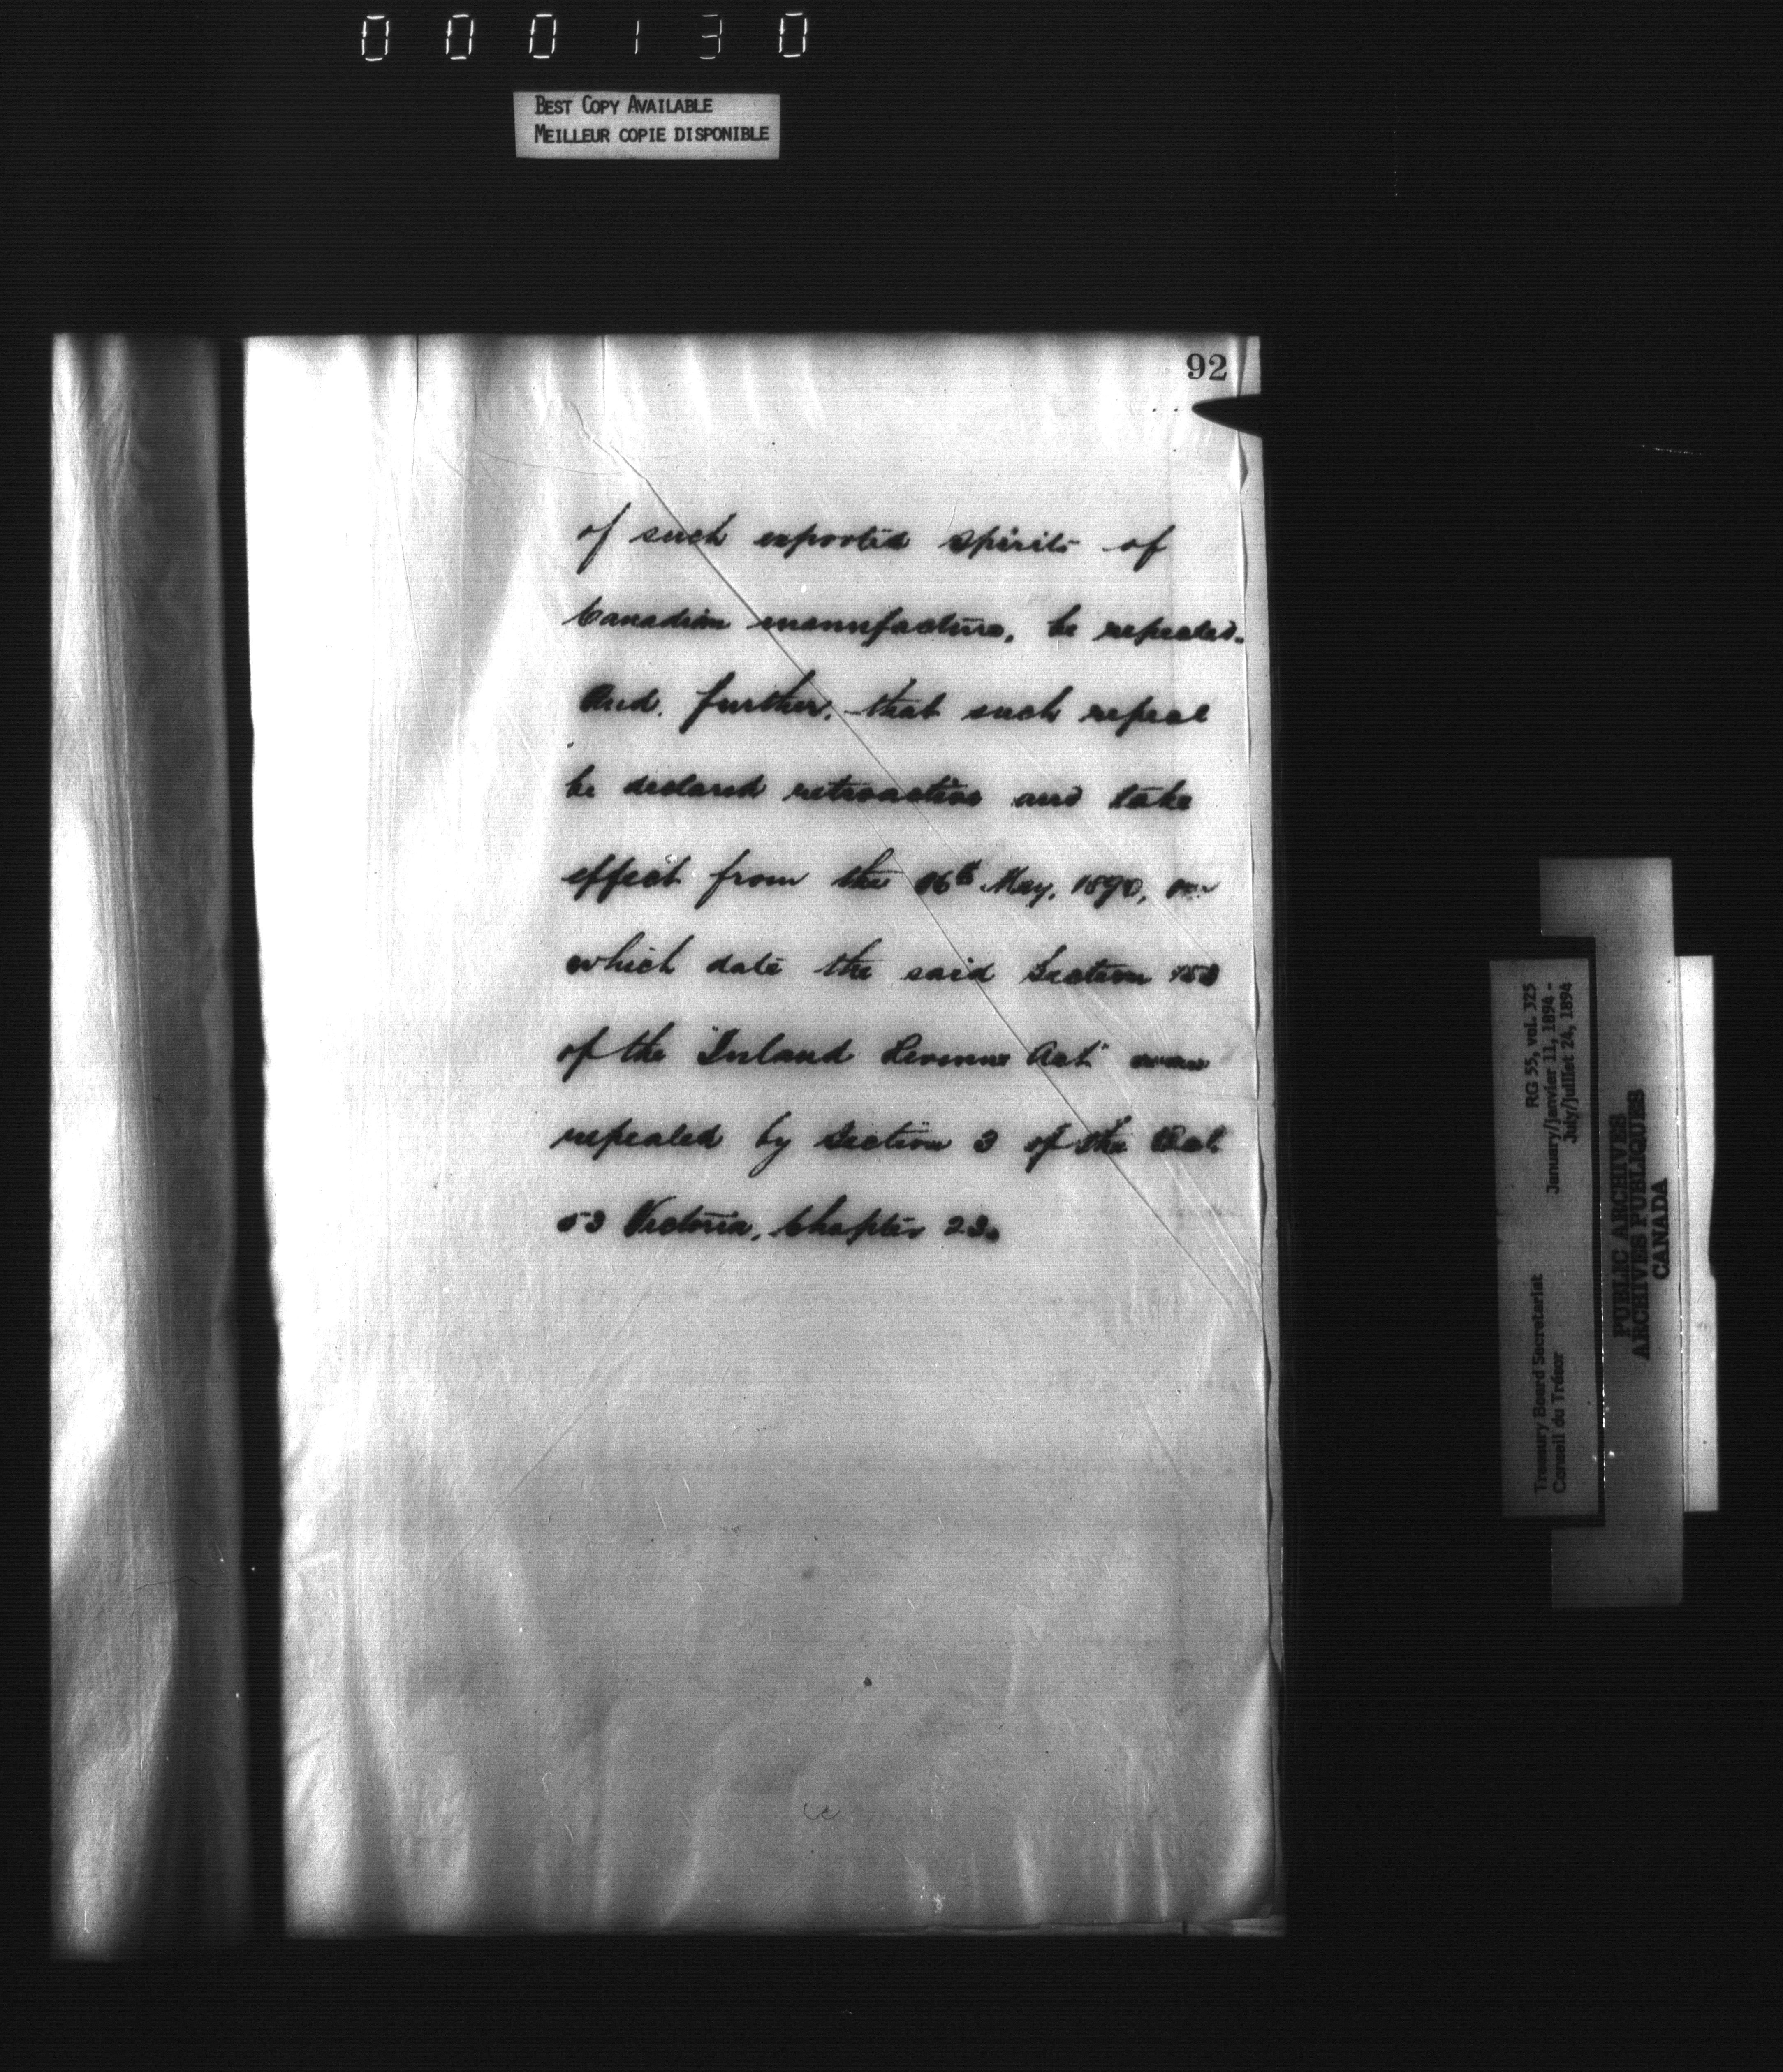 000130
BEST COPY AVAILABLE
MEILLEUR COPIE DISPONIBLE
92
of such exported spirits of
Canadian manufacture, be repealed.
And further, that such repeal
be declared retroactive and take
effect from the 16th May, 1890, on
which date the said Section
of the "Inland Revenue Act" was
repealed by Section 3 of the Act
53 Victoria, Chapter 23.
RG 55, vol. 325
January/janvier 11, 1894 -
July/juillet 24, 1894
Treasury Board Secretariat
Conseil du Trésor
PUBLIC ARCHIVES
ARCHIVES PUBLIQUES
CANADA